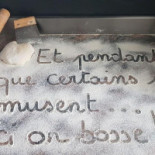 Et pendant
que certains s
musent...
ci on bosse